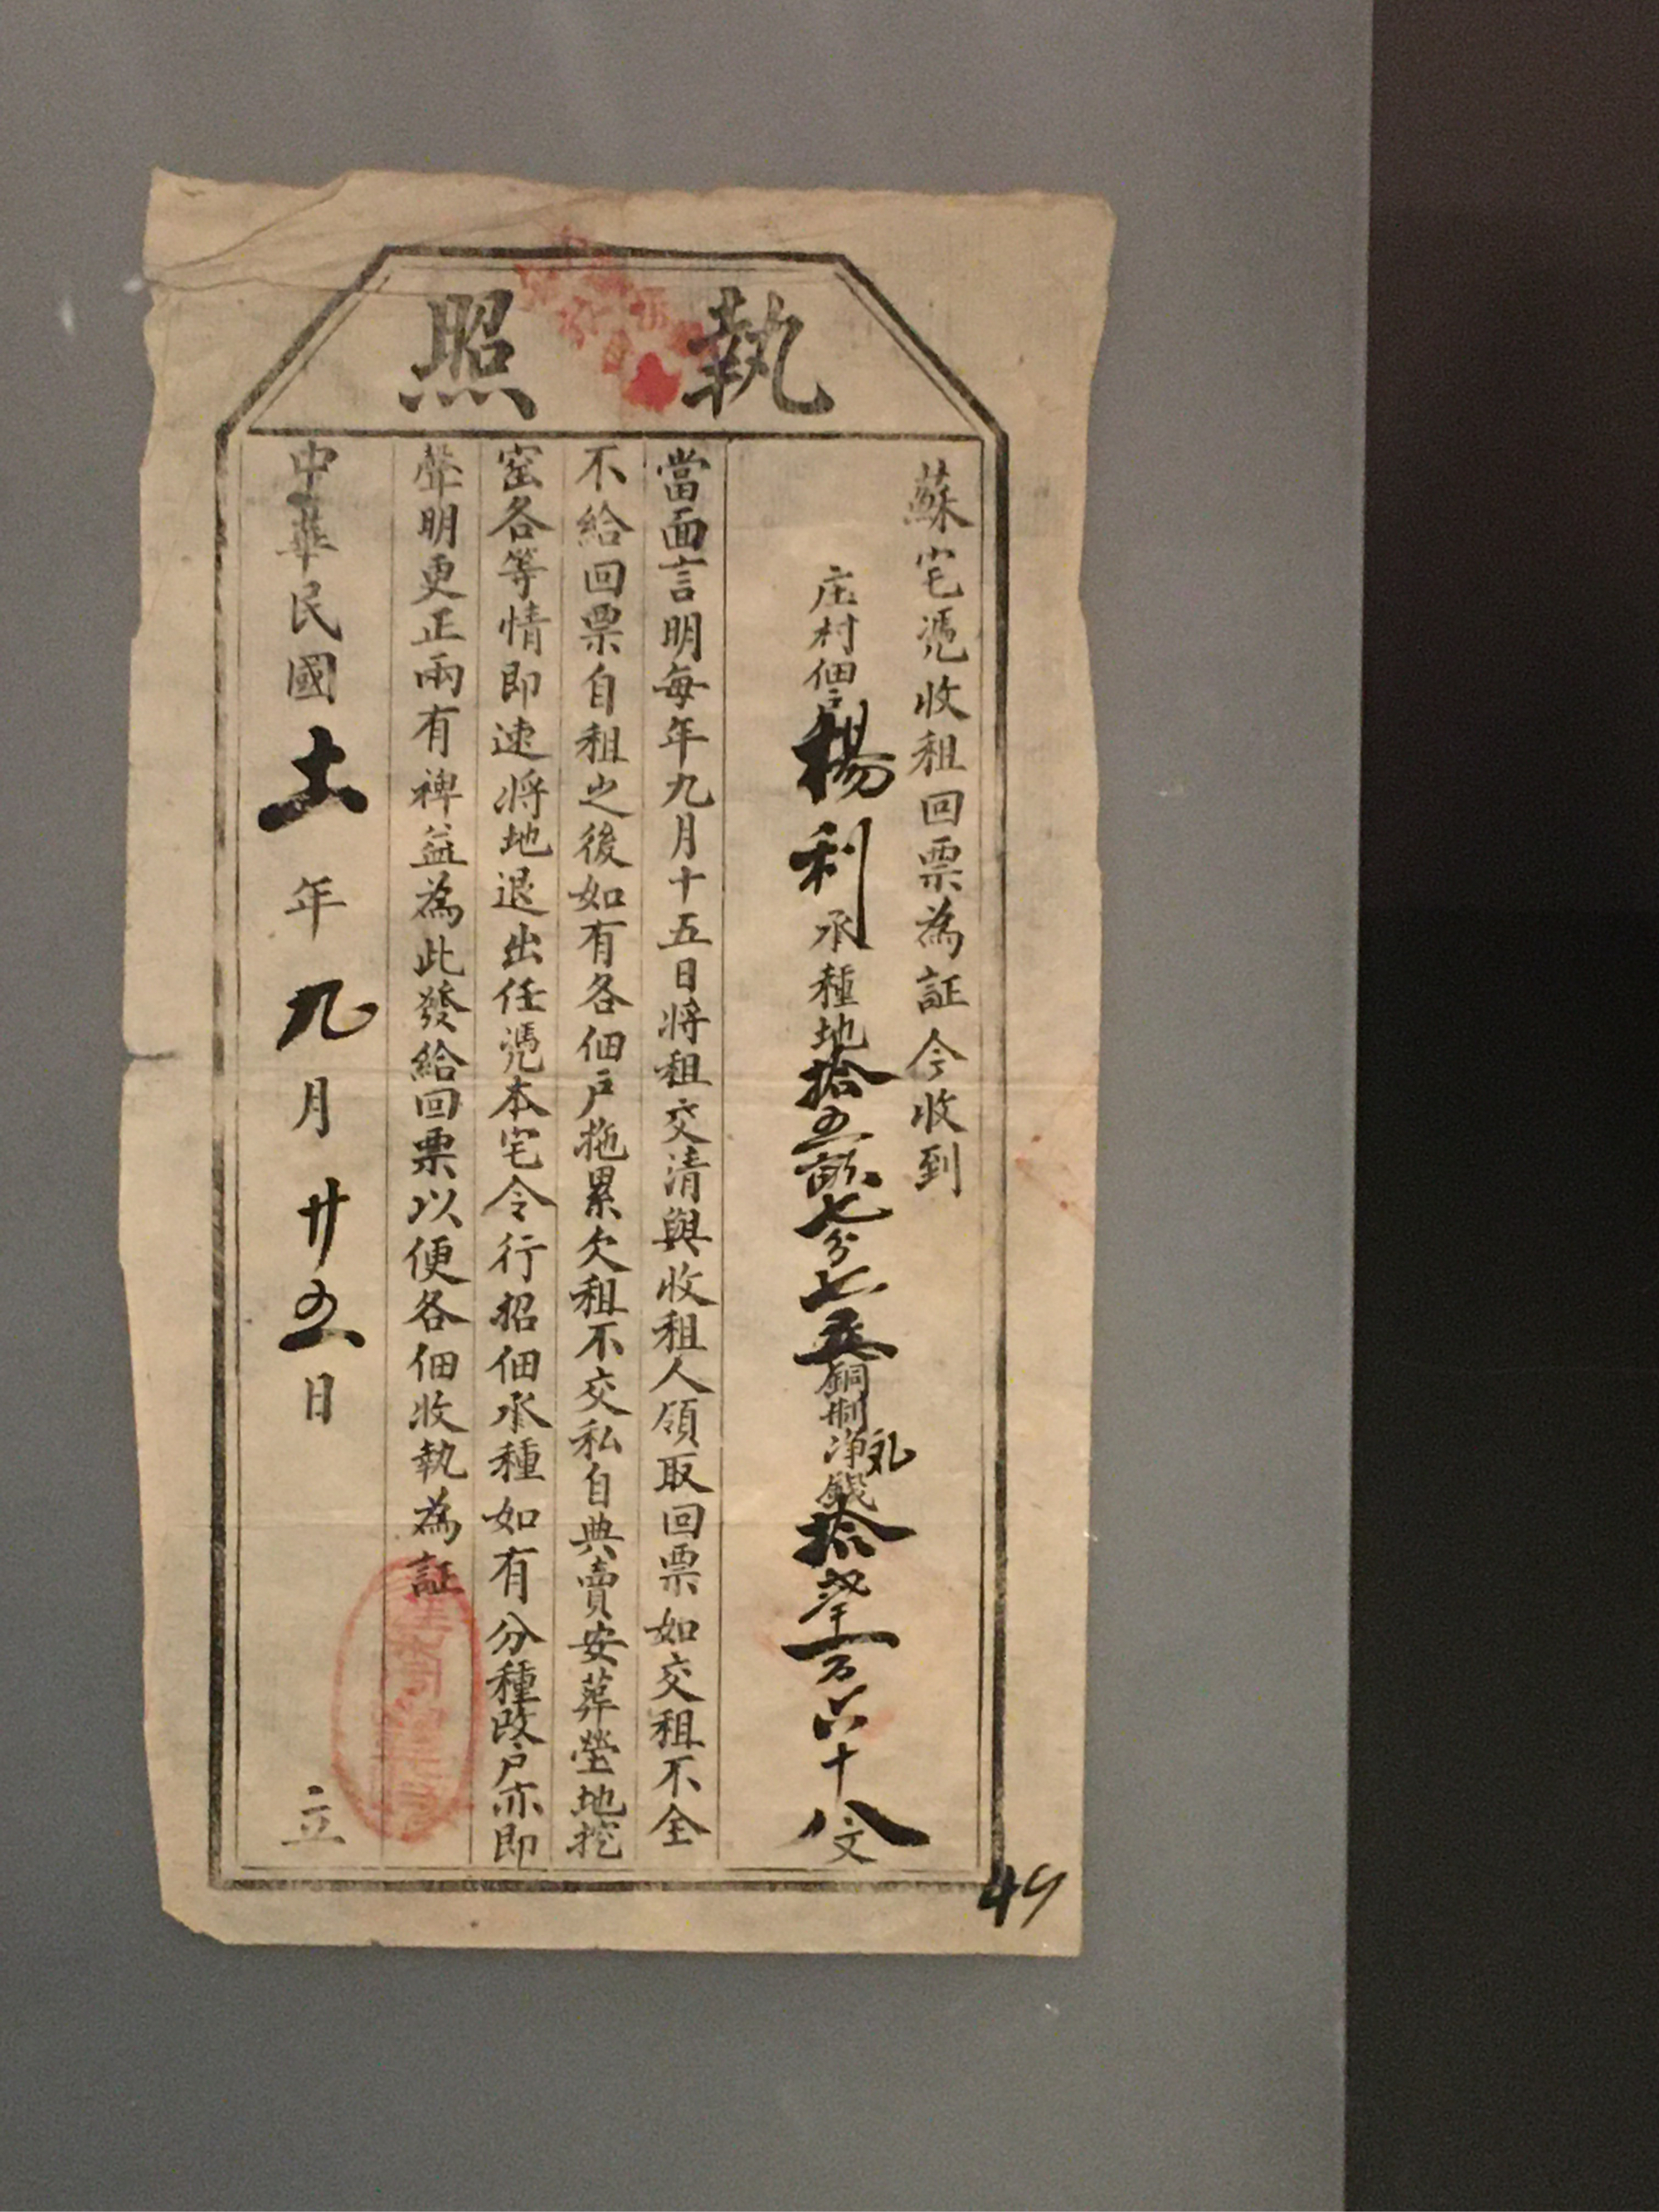 執照
蘇宅憑收租回票為証今收到
庄村佃戶楊利承種地拾五畝七分七
銅制淨錢拾
六十八文
當面言明每年九月十五日將租交清與收租人領取回票如交租不全
不給回票自租之後如有各佃戶拖累欠租不交私自典賣安葬塋地挖
窑各等情即速將地退出任憑本宅令行招佃承種如有分種改戶亦即
聲明更正兩有裨益為此發給回票以便各佃收執為証
中華民國十一年九月廿五日
立
49